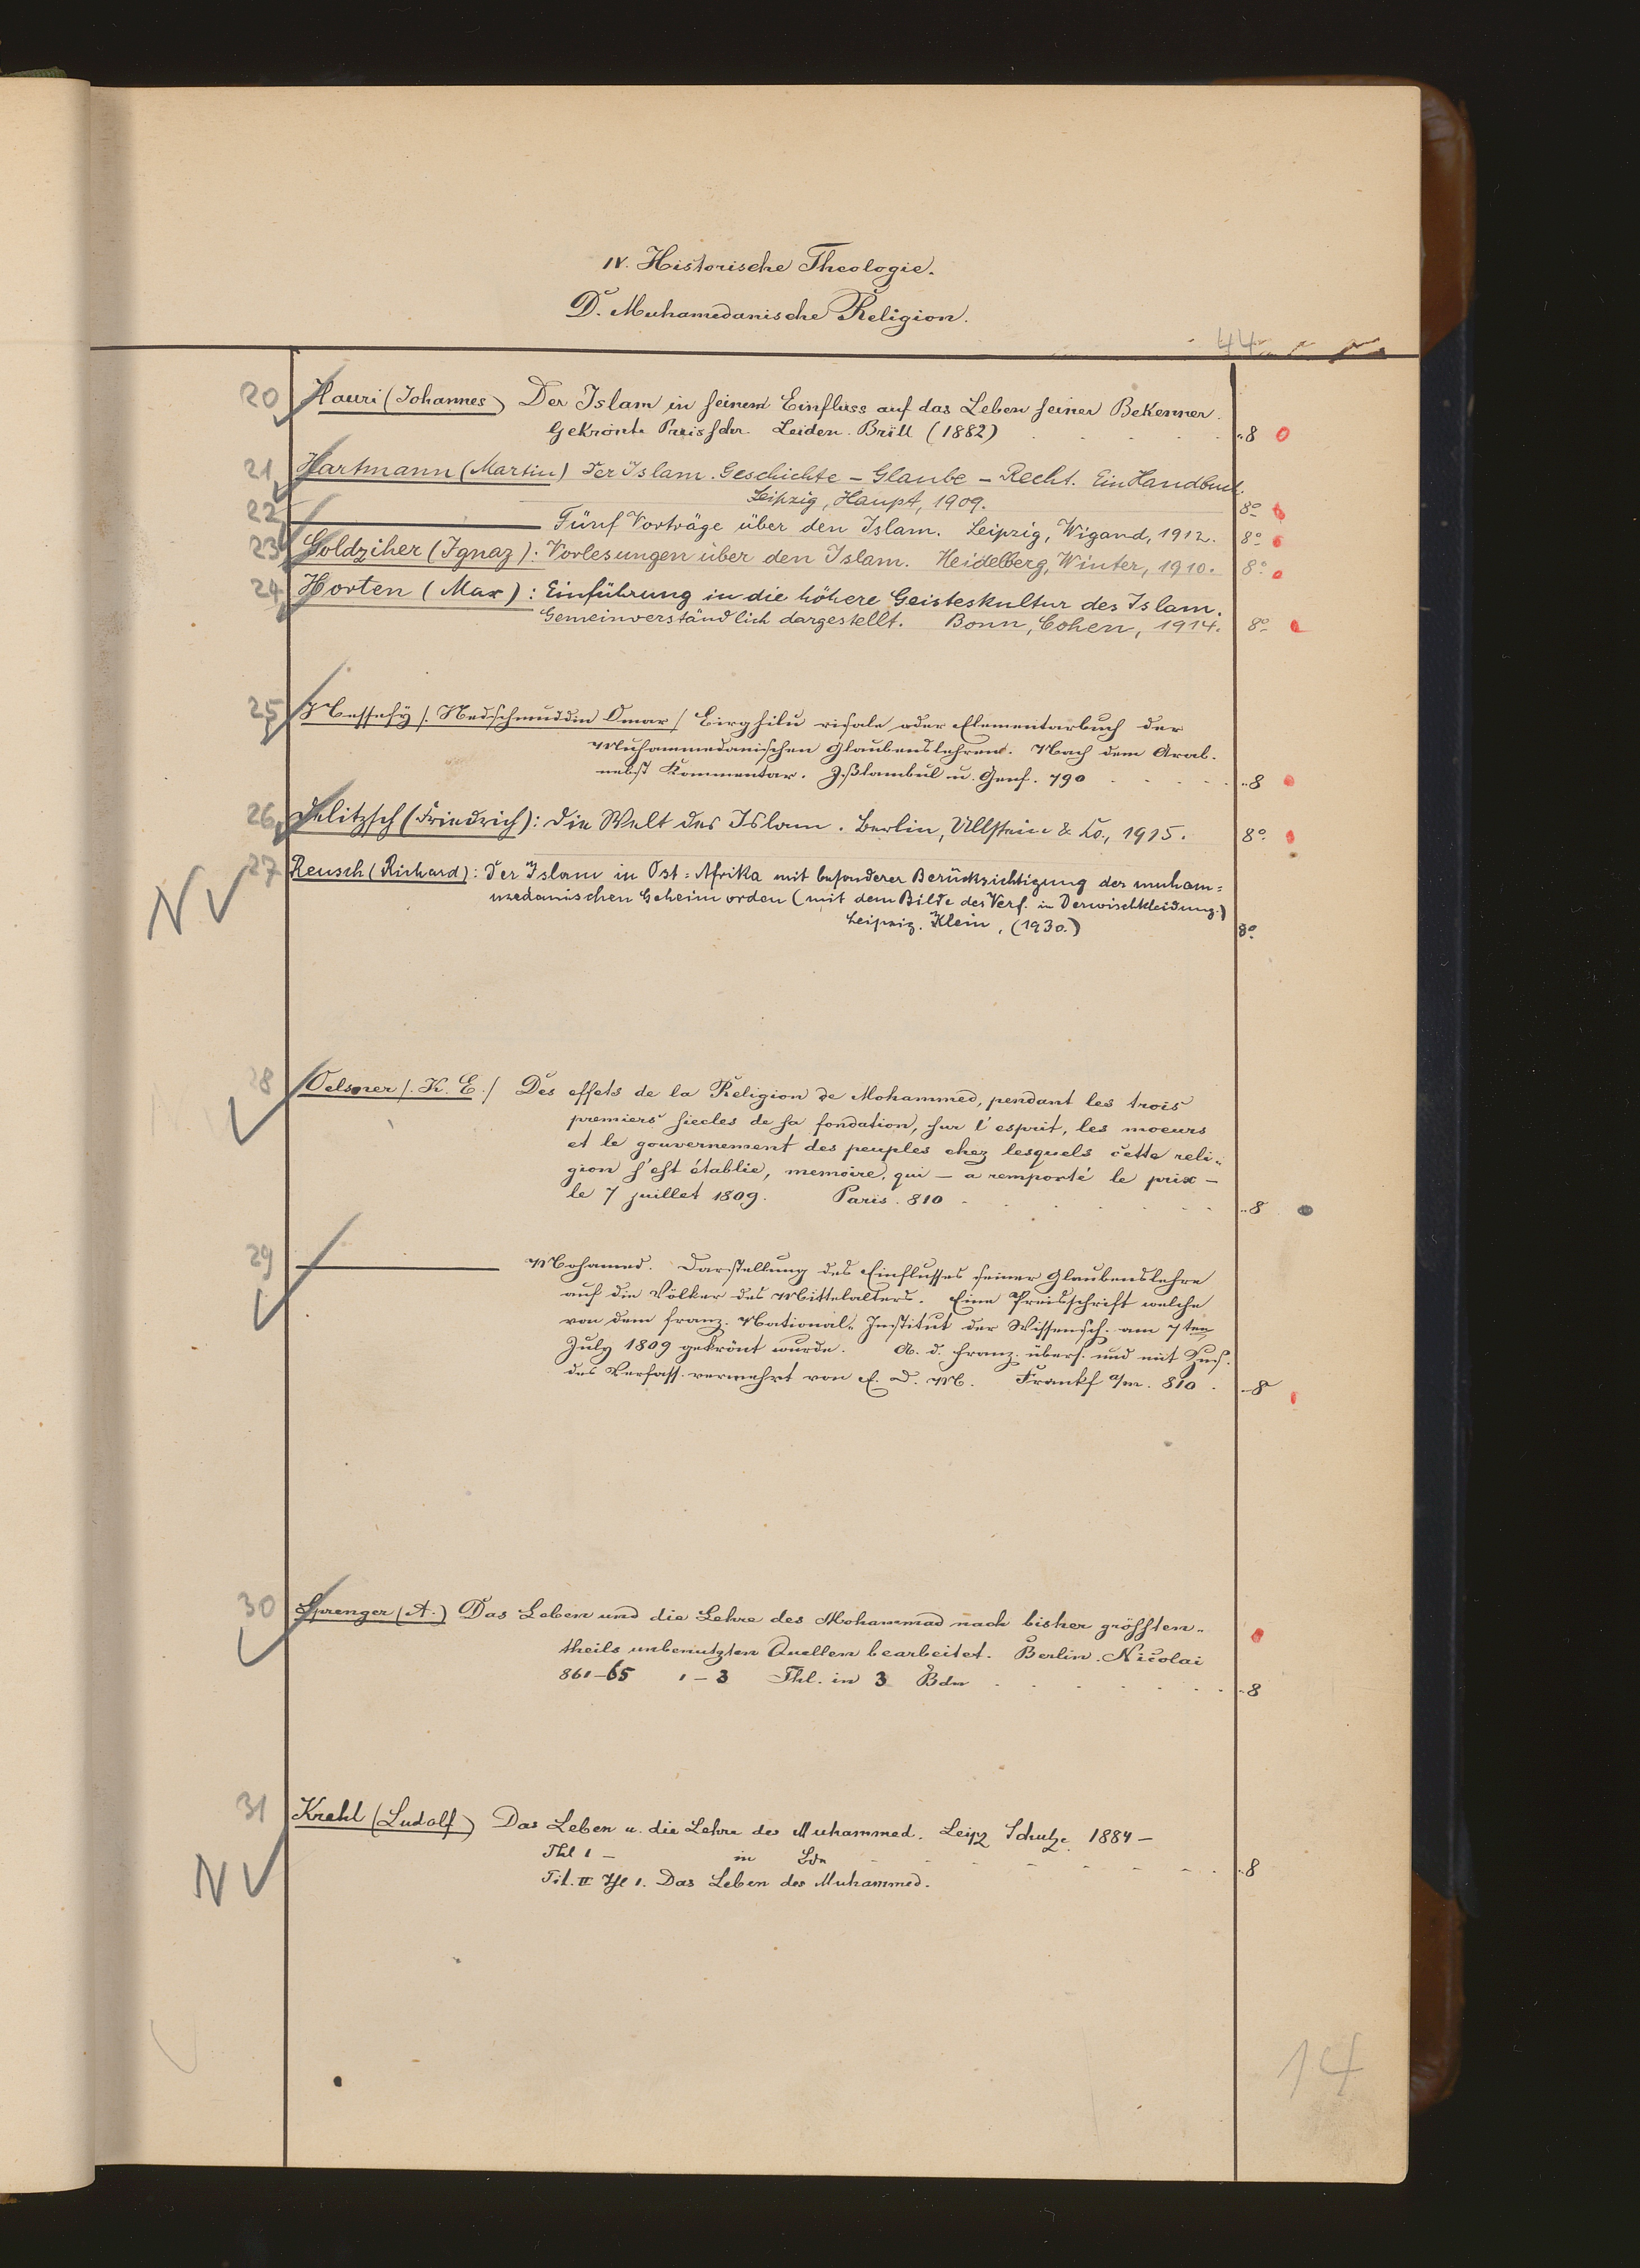 IV. Historische Theologie.
D. Muhamedanische Religion.
44
20 Hauri (Johannes) Der Islam in seinem Einfluss auf das Leben seiner Bekenner.
Gekrönte Preisschr. Leiden. Brill (1882) ..8
21 Hartmann (Martin) Der Islam. Geschichte – Glaube – Recht. Ein Handbuch.
Leipzig, Haupt, 1909. 8o
22 Fünf Vorträge über den Islam. Leipzig, Wigand, 1912. 8o
23 Goldziher (Ignaz): Vorlesungen über den Islam. Heidelberg, Winter, 1910. 8o
24 Horten (Max): Einführung in die höhere Geisteskultur des Islam.
Gemeinverständlich dargestellt. Bonn, Cohen, 1914. 8o
25 Nessefy /. Nedschmuddin Omar / Birghilu risale oder Elementarbuch der
Muhammedanischen Glaubenslehren. Nach dem Arab.
nebst Kommentar. Istambul u. Genf. 790 ..8
26 Delitzsch (Friedrich): Die Welt des Islam. Berlin, Ullstein & Co., 1915. 8o
27 Reusch (Richard): Der Islam in Ost=Afrika mit besonderer Berücksichtigung der muham=
NV
medanischen Geheimorden (mit dem Bilde des Verf. in Derwischkleidung.)
Leipzig. Klein, (1930.) 8o
28 Oelsner /. K. E./ Des effets de la Religion de Mohammed, pendant les trois
premiers siecles de sa fondation, sur l'esprit, les moeurs
et le gouvernement des peuples chez lesquels cette reli-
gion s'est établie, memoire, qui – a remporté le prix –
le 7 juillet 1809. Paris. 810 ..8
29 Mohamed. Darstellung des Einflusses seiner Glaubenslehre
auf die Völker des Mittelalters. Eine Preisschrift welche
von dem franz. National-Institut der Wissensch. am 7ten
July 1809 gekrönt wurde. A. d. franz. übers. und mit Zus.
des Verfass. vermehrt von E. D. M. Frankf a/m. 810. ..8
30 Sprenger (A.) Das Leben und die Lehre des Mohammad nach bisher grössten-
theils unbenutzten Quellen bearbeitet. Berlin. Nicolai
861–65 1–3 Thl. in 3 Bdn ..8
31 Krehl (Ludolf) Das Leben u. die Lehre des Muhammed. Leipz Schulze 1884 –
Thl 1 – in Bdn ..8
NV
Tit. II Thl 1. Das Leben des Muhammed.
14